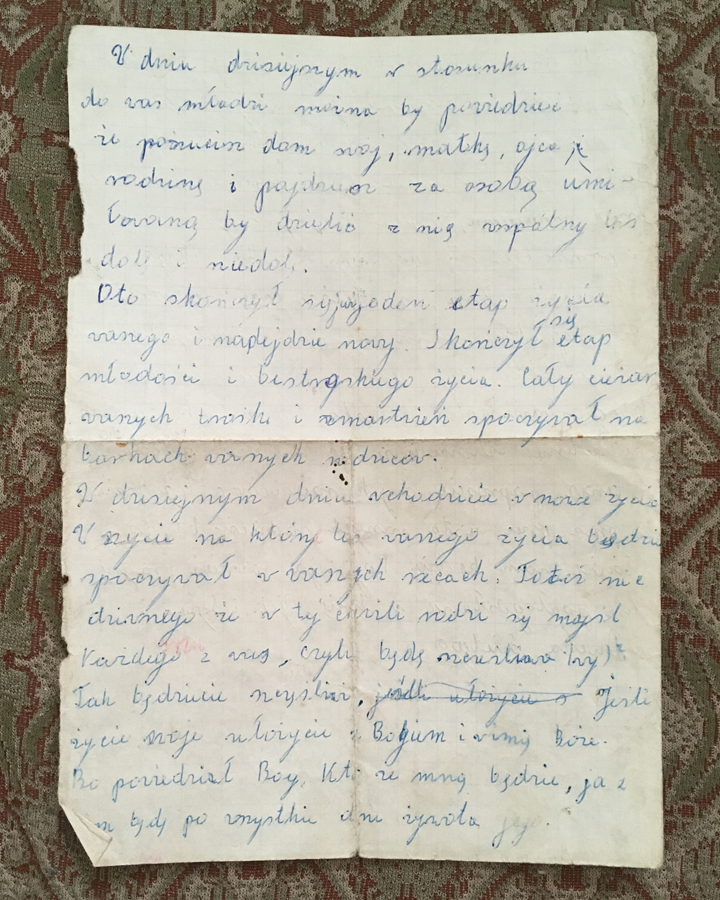 V dniu dzisiejszym v stosunku
do vas młodzi można by poviedzieć
że porzucisz dom svój, matkę, ojca
rodzinę i pójdziesz za osobą umi-
łovaną by dzielić z nią vspólny los
dolę i niedolę.
Oto skończył się jeden etap życia
vaszego i nadejdzie novy. Skończył się etap
młodości i beztroskiego życia. Cały ciężar
vaszych trosk i zmartvień spoczyvał na
barkach vaszych rodziców.
V dzisiejszym dniu vchodzicie v nowe życie
V życie na który los vaszego życia będzie
spoczyvał v vaszych rękach. Toteż nic
dzivnego że v tej chvili rodzi się myśl
Każdego z vas, czyli będę
Tak będziecie szczęślivi, jeśli ułożycie s Jeśli
życie swoje ułożycie z Bogiem i v imię Boże.
Bo poviedział Boy, Kto ze mną będzie, ja z
nim będę po vszystkie dni żyvota jego.